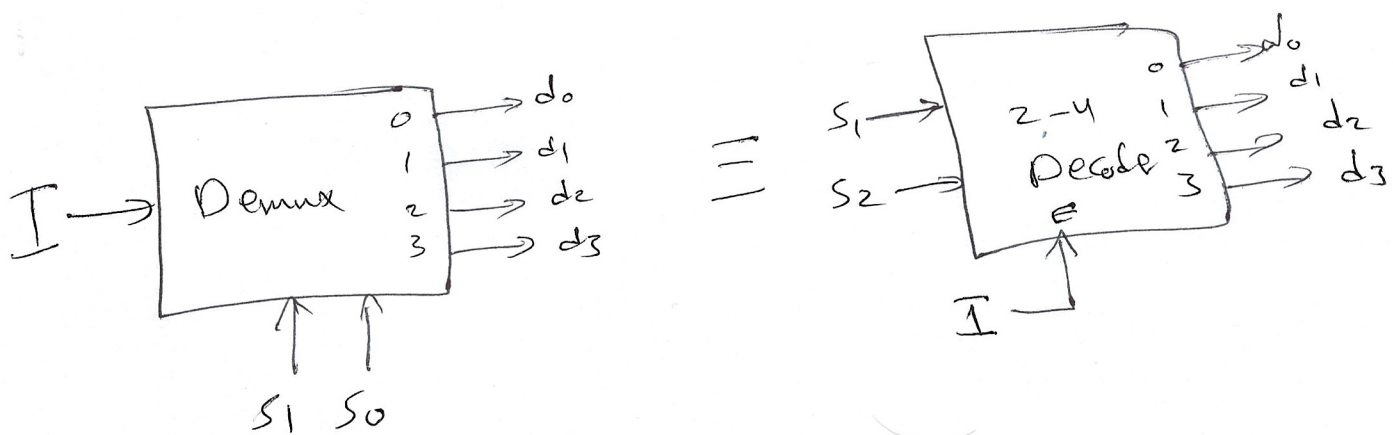 I
Demux
0
1
2
3
d0
d1
d2
d3
S1 S0
≡
S1
S2
2-4
Decode
E
I
0
1
2
3
d0
d1
d2
d3